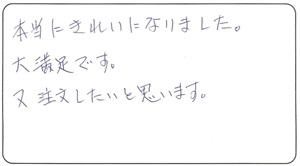 本当にきれいになりました。
大満足です。
又注文したいと思います。